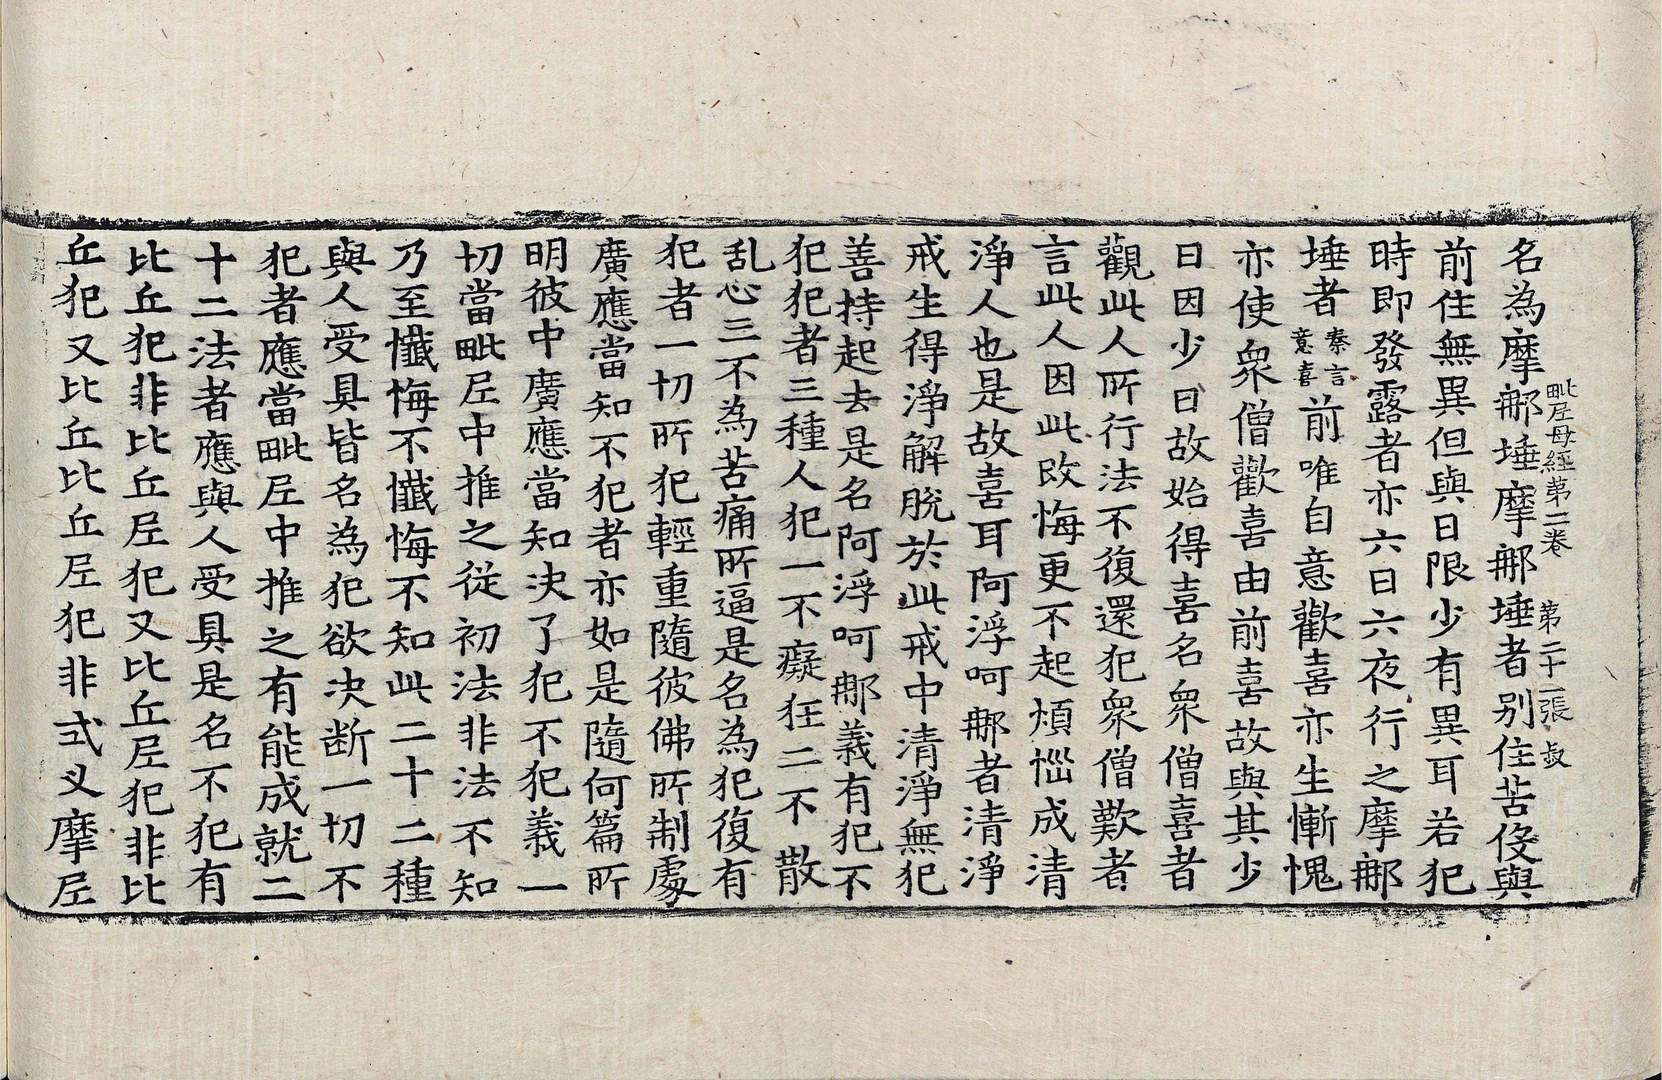 毗尼母經第二卷　第二十二張　叔
名為摩那埵摩那埵者別住苦役與
前住無異但與日限少有異耳若犯
時即發露者亦六日六夜行之摩那
埵者秦言意喜前唯自意歡喜亦生慚愧
亦使衆僧歡喜由前喜故與其少
日因少日故始得喜名衆僧喜者
觀此人所行法不復還犯衆僧歎者
言此人因此改悔更不起煩惱成清
淨人也是故喜耳阿浮呵那者清淨
戒生得淨解脫於此戒中清淨無犯
善持起去是名阿浮呵那義有犯不
犯犯者三種人犯一不癡狂二不散
乱心三不為苦痛所逼是名為犯復有
犯者一切所犯輕重隨彼佛所制處
廣應當知不犯者亦如是隨何篇所
明彼中廣應當知決了犯不犯義一
切當毗尼中推之從初法非法不知
乃至懺悔不懺悔不知此二十二種
與人受具皆名為犯欲决断一切不
犯者應當毗尼中推之有能成就二
十二法者應與人受具是名不犯有
比丘犯非比丘尼犯又比丘尼犯非比
丘犯又比丘比丘尼犯非式叉摩尼